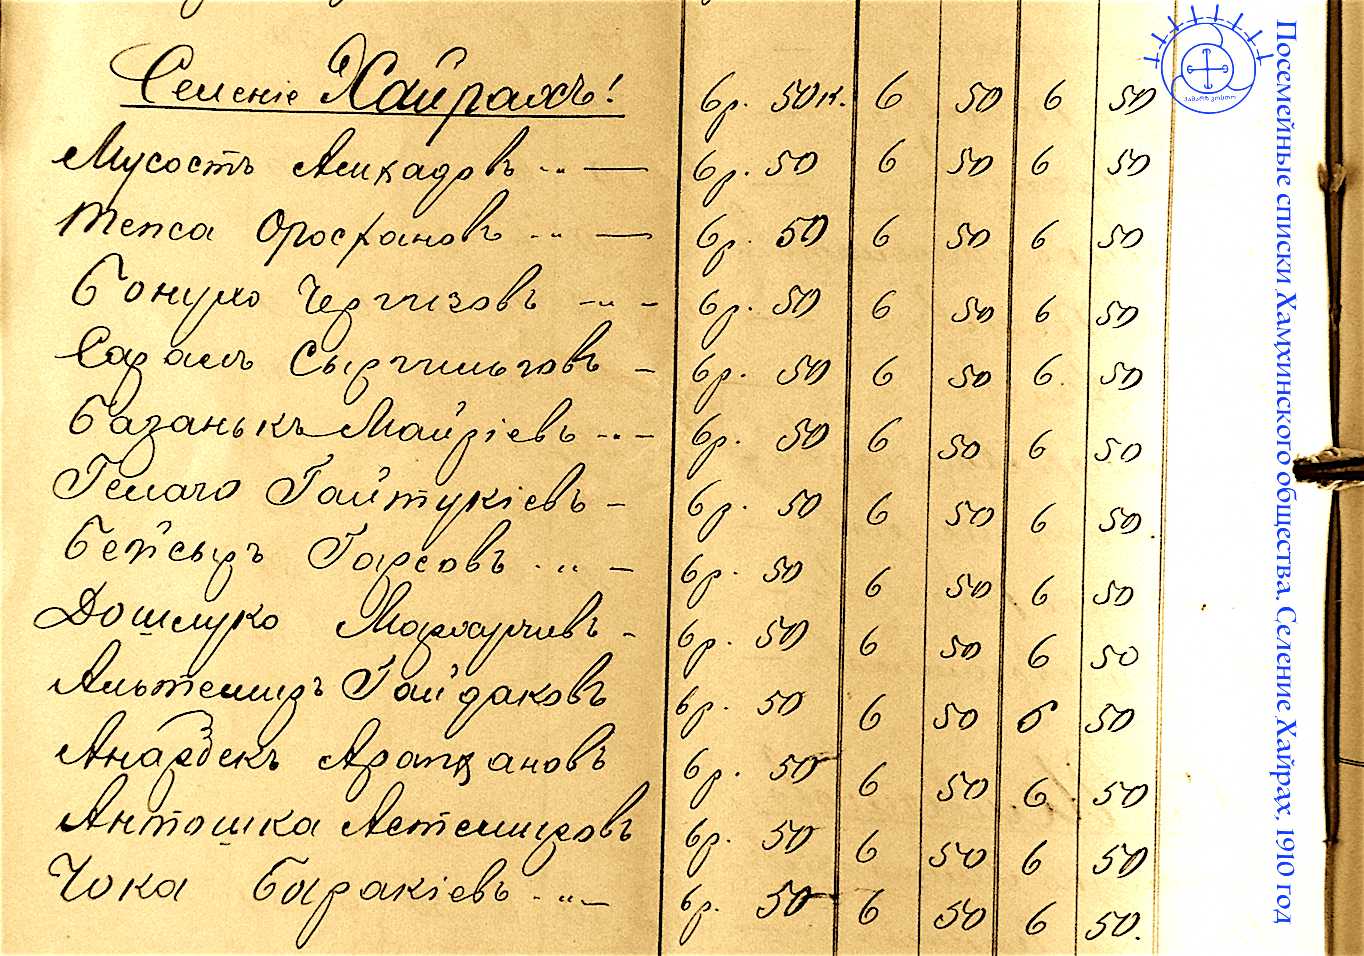 Селеніе Хайрахъ! 6р. 50к. 6 50 6 50
Мусостъ Алихадовъ -"- — 6р. 50 6 50 6 50
Тепса Оросхановъ -"- — 6р. 50 6 50 6 50
Бонухо Чергизовъ -"- - 6р. 50 6 50 6 50
Сарали Сыргильговъ - 6р. 50 6 50 6 50
Базанькъ Майріевъ -"- 6р. 50 6 50 6 50
Гелаго Гайтукіевъ - 6р. 50 6 50 6 50
Бейсыръ Гарсовъ -"- - 6р. 50 6 50 6 50
Дошлуко Мархулиевъ - 6р. 50 6 50 6 50
Альтемиръ Гайдаковъ 6р. 50 6 50 6 50
Анарбекъ Арапхановъ 6р. 50 6 50 6 50
Антошка Астемировъ 6р. 50 6 50 6 50
Чока Баракіевъ -"- 6р. 50 6 50 6 50.
Посемейные списки Хамхинского общества. Селение Хайрах, 1910 год